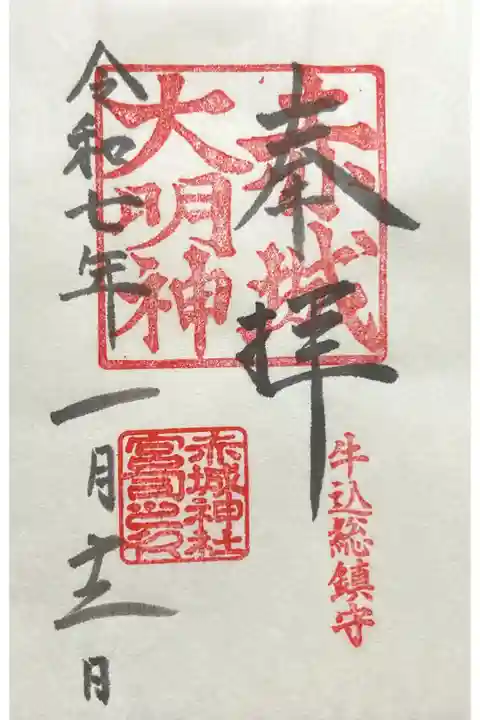 牛込総鎮守
奉拝
赤城
大明神
赤城神社
宮司之印
令和七年
一月十日